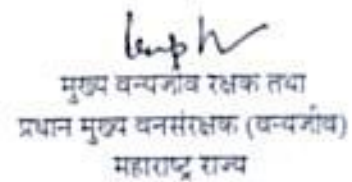 मुख्य वन्यजीव रक्षक तथा
प्रधान मुख्य वनसंरक्षक (वन्यजीव)
महाराष्ट्र राज्य